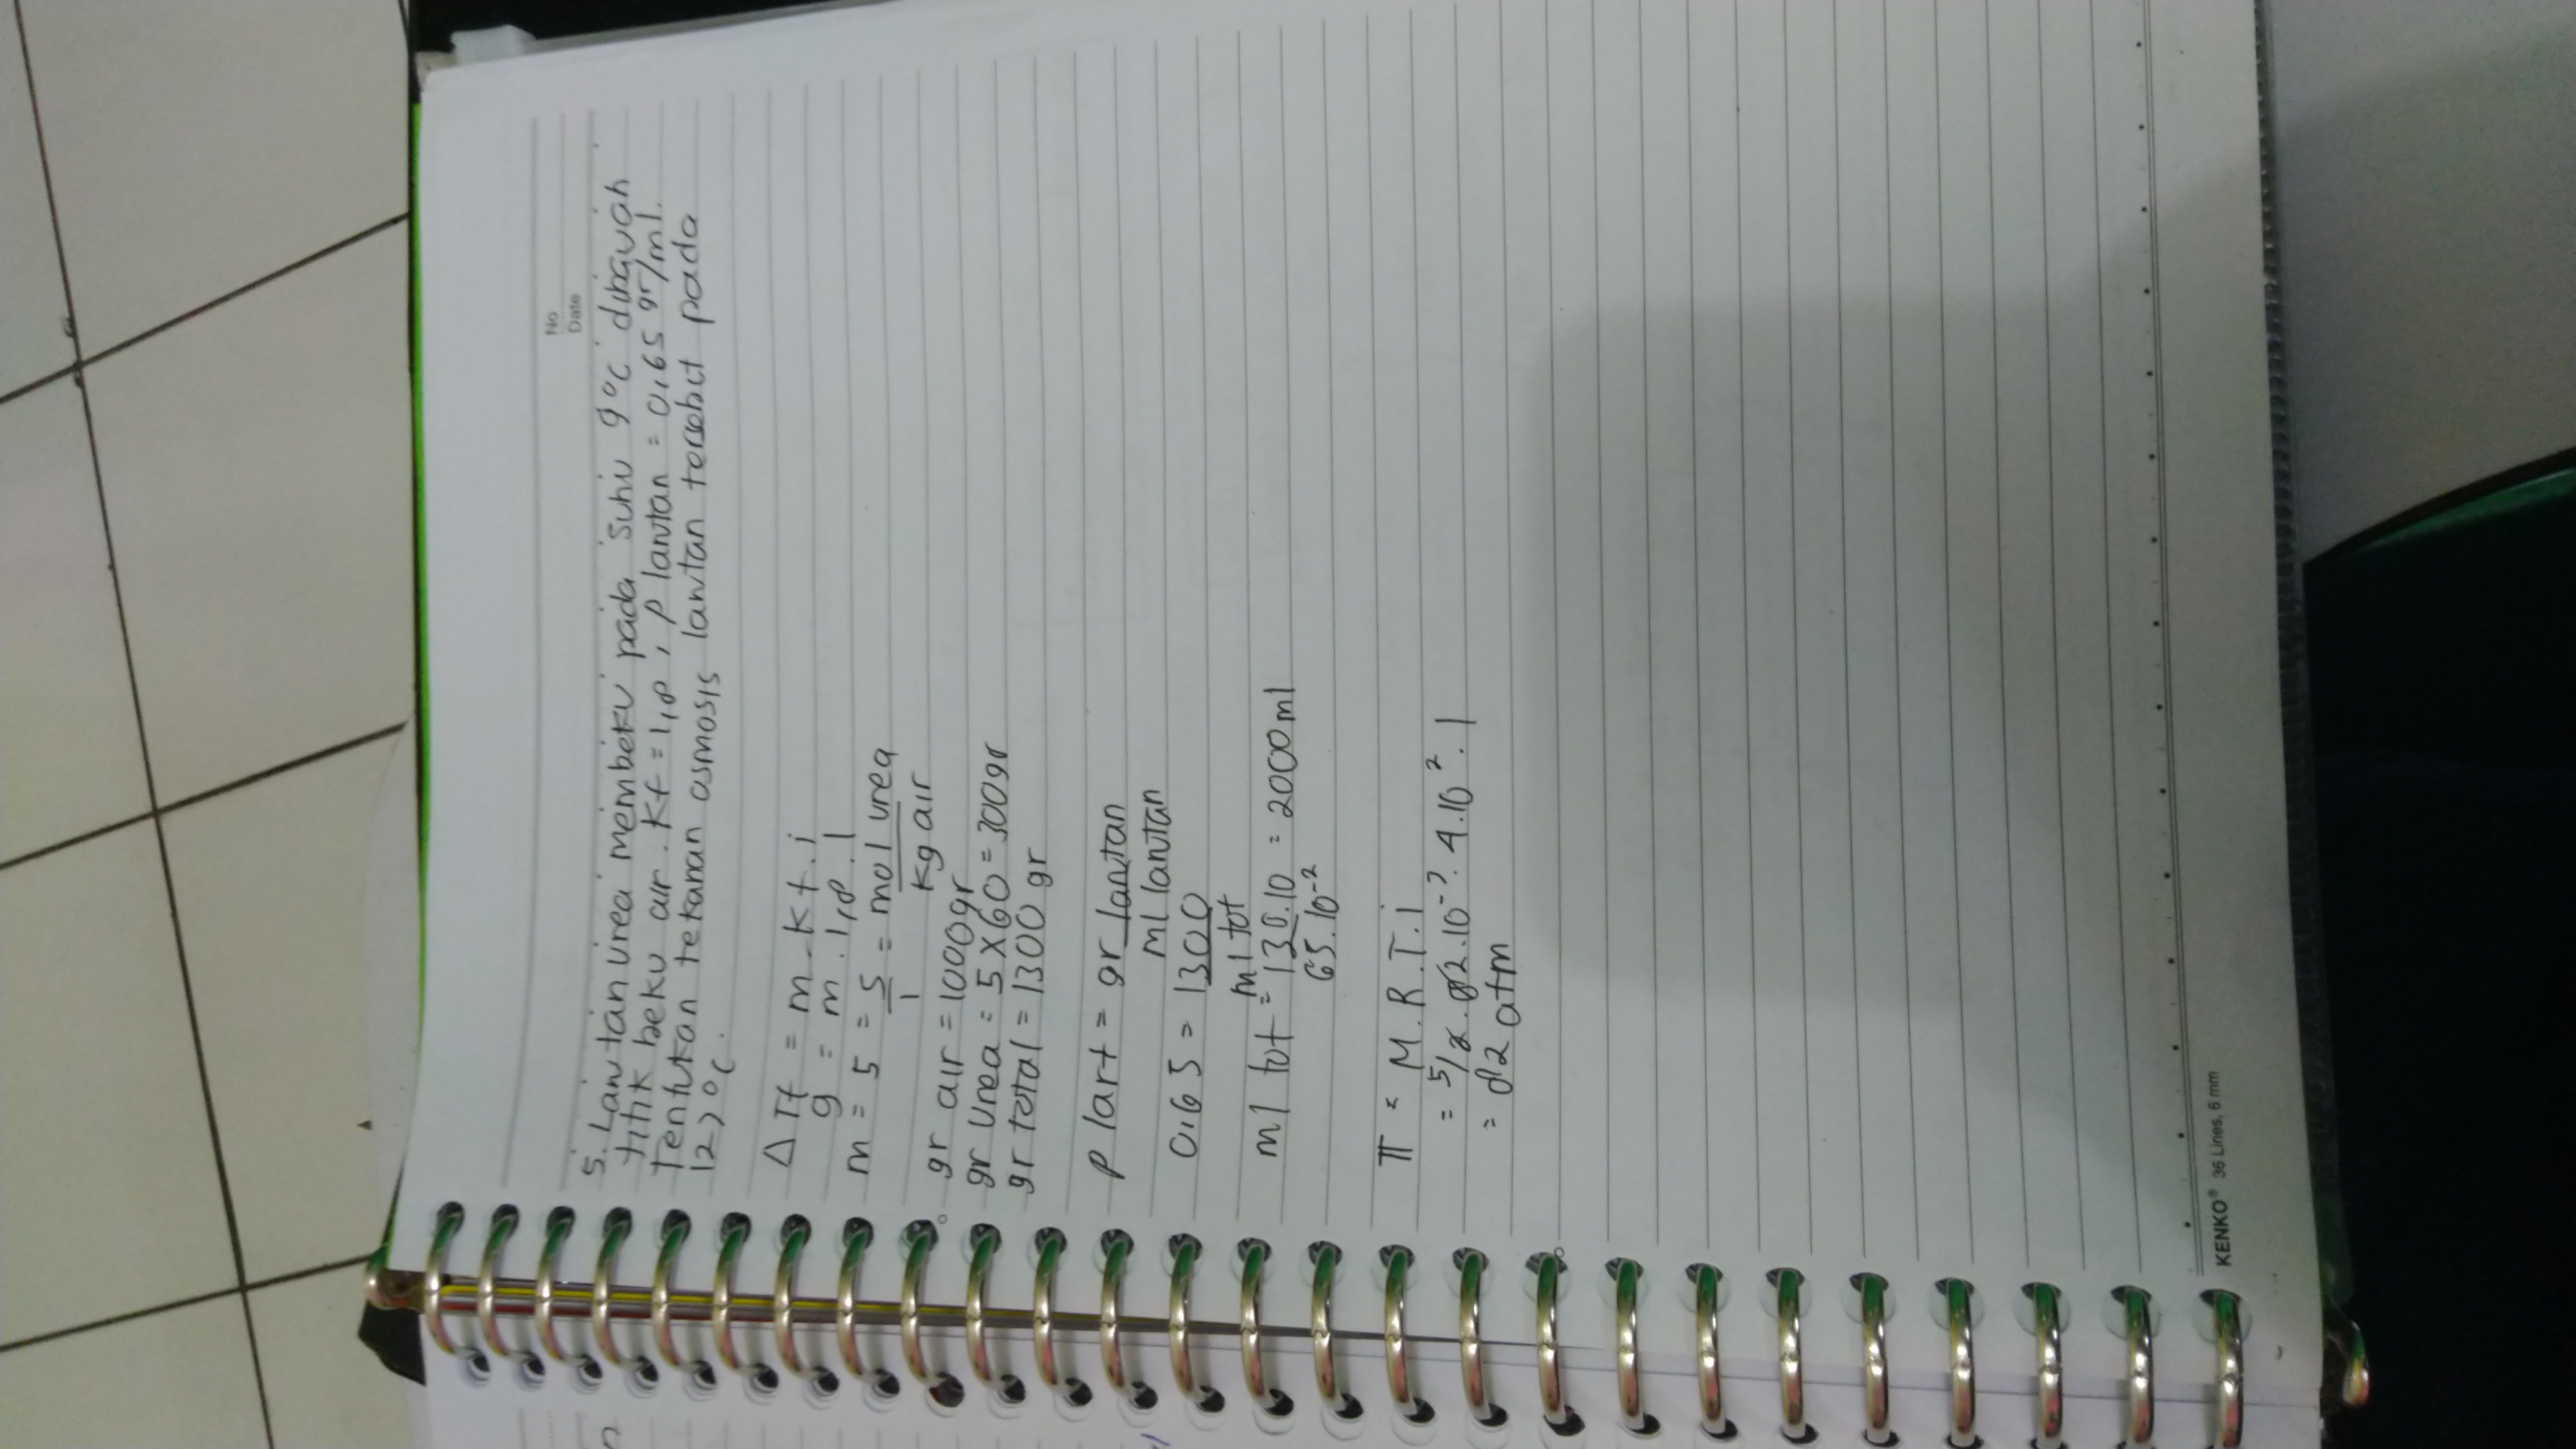 No
Date
5. Larutan urea membeku pada suhu 9°C dibawah
titik beku air. Kf = 1,8, ρ larutan = 0,65 gr/ml.
Tentukan tekanan osmosis larutan tersebut pada
127°C.
Δ Tf = m . Kf . i
9 = m . 1,8 . 1
m = 5 = 5/1 = mol urea / kg air
gr air = 1000gr
gr urea = 5 X 60 = 300gr
gr total = 1300 gr
ρ lart = gr larutan / ml larutan
0,65 = 1300 / ml tot
ml tot = 130.10 / 65.10⁻² = 2000 ml
π = M . R . T . i
= 5/2 . 82.10⁻³ . 4.10² . 1
= 82 atm
KENKO® 36 Lines, 6 mm